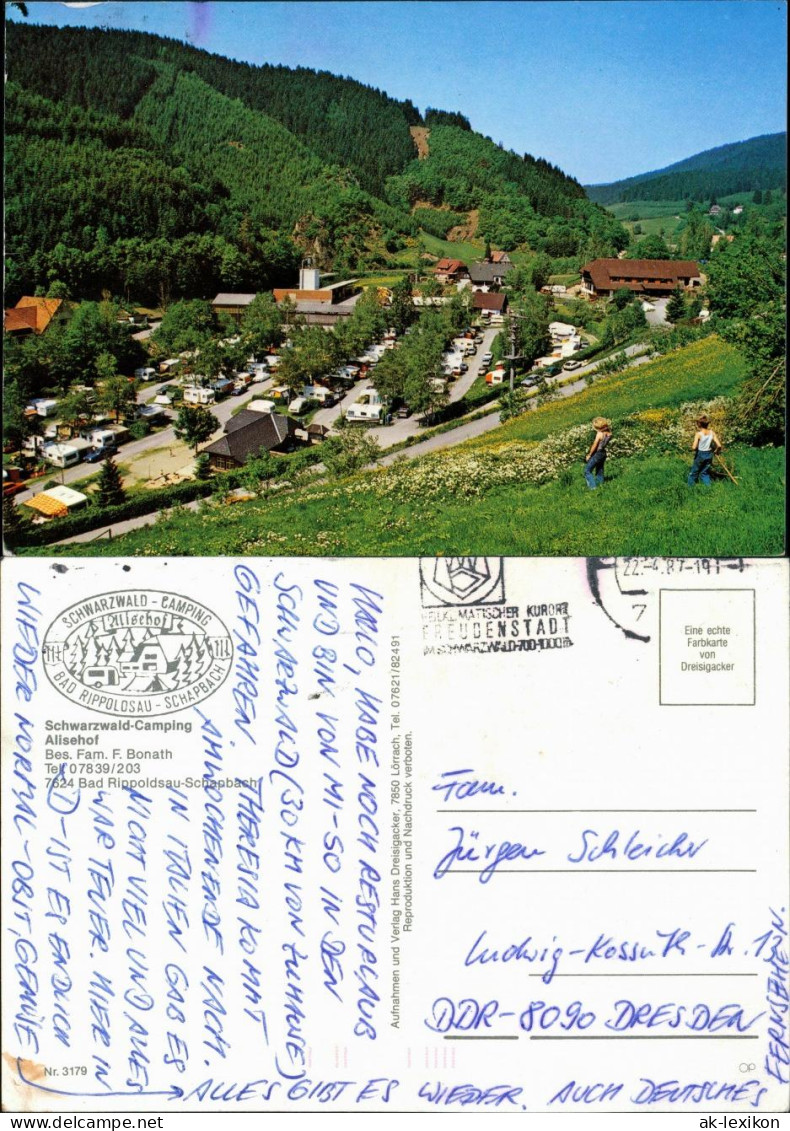 SCHWARZWALD - CAMPING
Alisehof
BAD RIPPOLDSAU - SCHAPBACH
Schwarzwald-Camping
Alisehof
Bes. Fam. F. Bonath
Tel. 07839/203
7624 Bad Rippoldsau-Schapbach
HALLO, HABE NOCH RESTURLAUB
UND BIN VON MI-SO IN DEN
SCHWARZWALD (30 KM VON ZUHAUSE)
GEFAHREN. THERESIA KOMMT
AM WOCHENENDE NACH.
IN ITALIEN GAB ES
NICHT VIEL UND ALLES
WAR TEUER. HIER IN
D - IST ES ENDLICH
WIEDER NORMAL - OBST, GEMÜSE
ALLES GIBT ES WIEDER. AUCH DEUTSCHES
FERNSEHEN.
Nr. 3179
Aufnahmen und Verlag Hans Dreisigacker, 7850 Lörrach, Tel. 07621/82491
Reproduktion und Nachdruck verboten.
HEILKLIMATISCHER KURORT
FREUDENSTADT
IM SCHWARZWALD 700-1000 m
22.-4.87-19
7
Eine echte
Farbkarte
von
Dreisigacker
Fam.
Jürgen Schleicher
Ludwig-Kossuth-Str. 13
DDR-8090 DRESDEN
www.ansichtskartenversand.com
ak-lexikon